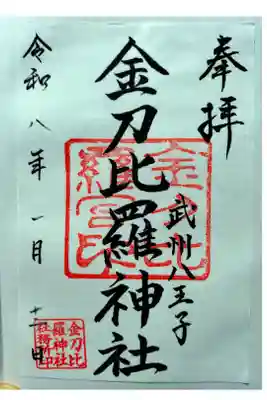 奉拝
武州八王子
金刀比羅神社
令和八年一月
金刀比
羅宮印
金刀比
羅神社
社務所印